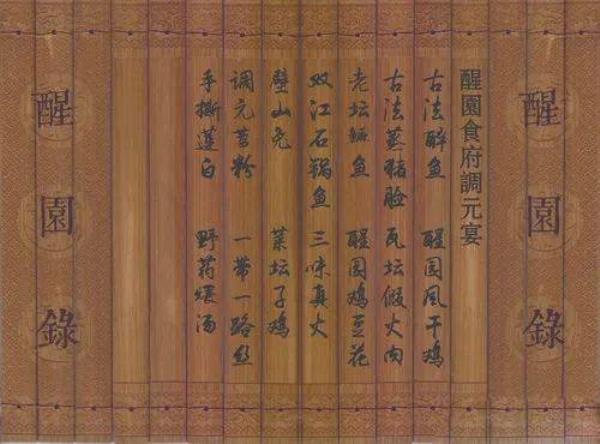 醒園錄
醒園食府調元宴
古法醉鱼 醒园风干鸡
古法蒸猪脸 瓦坛假火肉
老坛鱼 醒园鸡豆花
双江石锅鱼 三味真火
璧山兔 菜坛子鸡
调元苕粉 一带一路丝
手撕莲白 野药煨汤
醒園錄